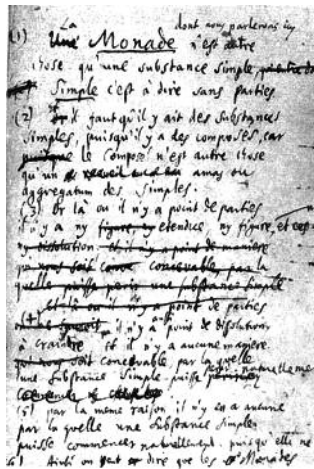 La dont nous parlerons icy
(1) Une Monade n'est autre
chose qu'une substance simple,
Simple c'est à dire sans parties
(2) Or il faut qu'il y ait des substances
simples, puisqu'il y a des composés, car
puisque le composé n'est autre chose
qu'un recueil amas ou
aggregatum des simples.
(3) Or là ou il n'y a point de parties
il n'y a ny figure, ny etendue, ny figure, et
ny dissolution et il n'y a point de maniere
qui nous soit concevable par la
quelle puisse perir une substance simple
Et là ou il n'y a point de parties
(4) il n'y a aussi point de dissolution
à craindre et il n'y a aucune maniere
concevable par la quelle
une substance simple puisse perir naturelleme
(5) par la meme raison il n'y en a aucune
par la quelle une substance simple
puisse commencer naturellement, puisqu'elle ne
6) Ainsi on peut dire que les Monades